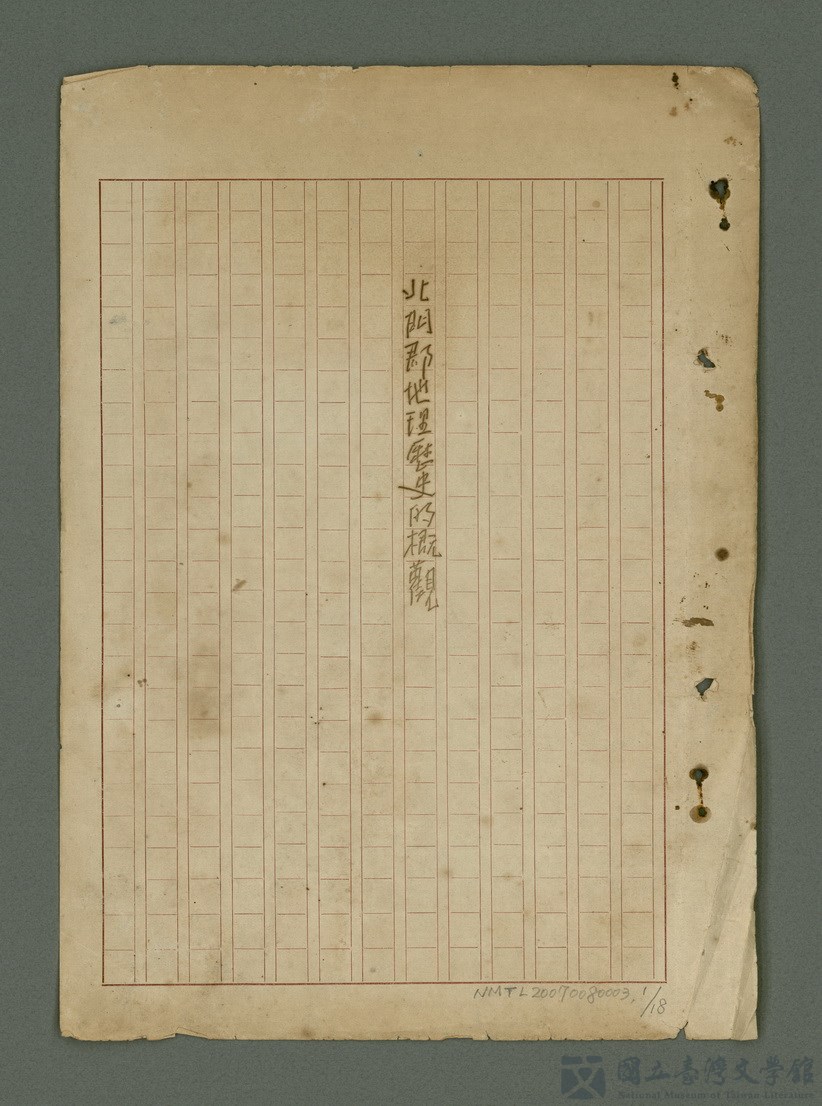 北門郡地理歷史的概觀
NMTL20070080003, 1/18
國立臺灣文學館
National Museum of Taiwan Literature